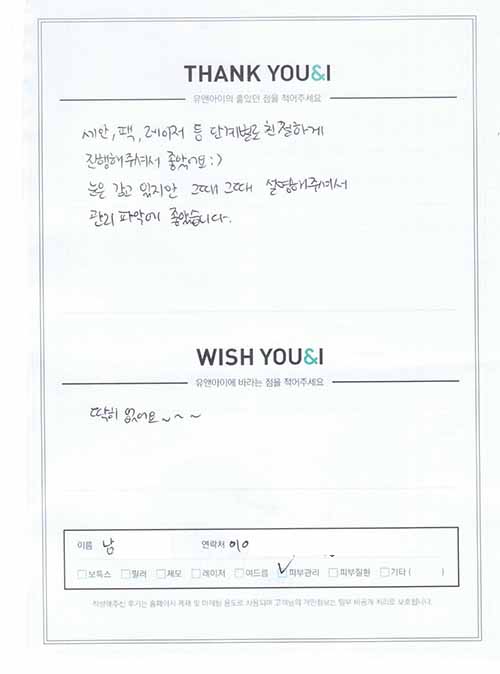 THANK YOU&I
유앤아이의 좋았던 점을 적어주세요
세안, 팩, 레이저 등 단계별로 친절하게
진행해주셔서 좋았어요:)
눈은 감고 있지만 그때그때 설명해주셔서
관리 파악에 좋았습니다.
WISH YOU&I
유앤아이에 바라는 점을 적어주세요
딱히 없어요~~~
이름 남 연락처 010
보톡스 필러 제모 레이저 여드름 피부관리 피부질환 기타 ( )
작성해주신 후기는 홈페이지 게재 및 마케팅 용도로 사용되며 고객님의 개인정보는 일부 비공개 처리로 보호됩니다.